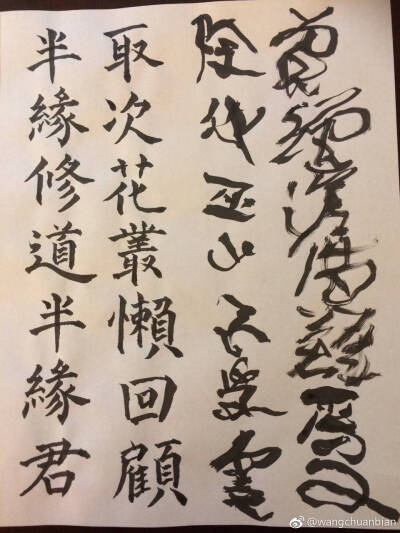 曾經滄海難爲水
除却巫山不是雲
取次花叢懶回顧
半緣修道半緣君
@wangchuanbian